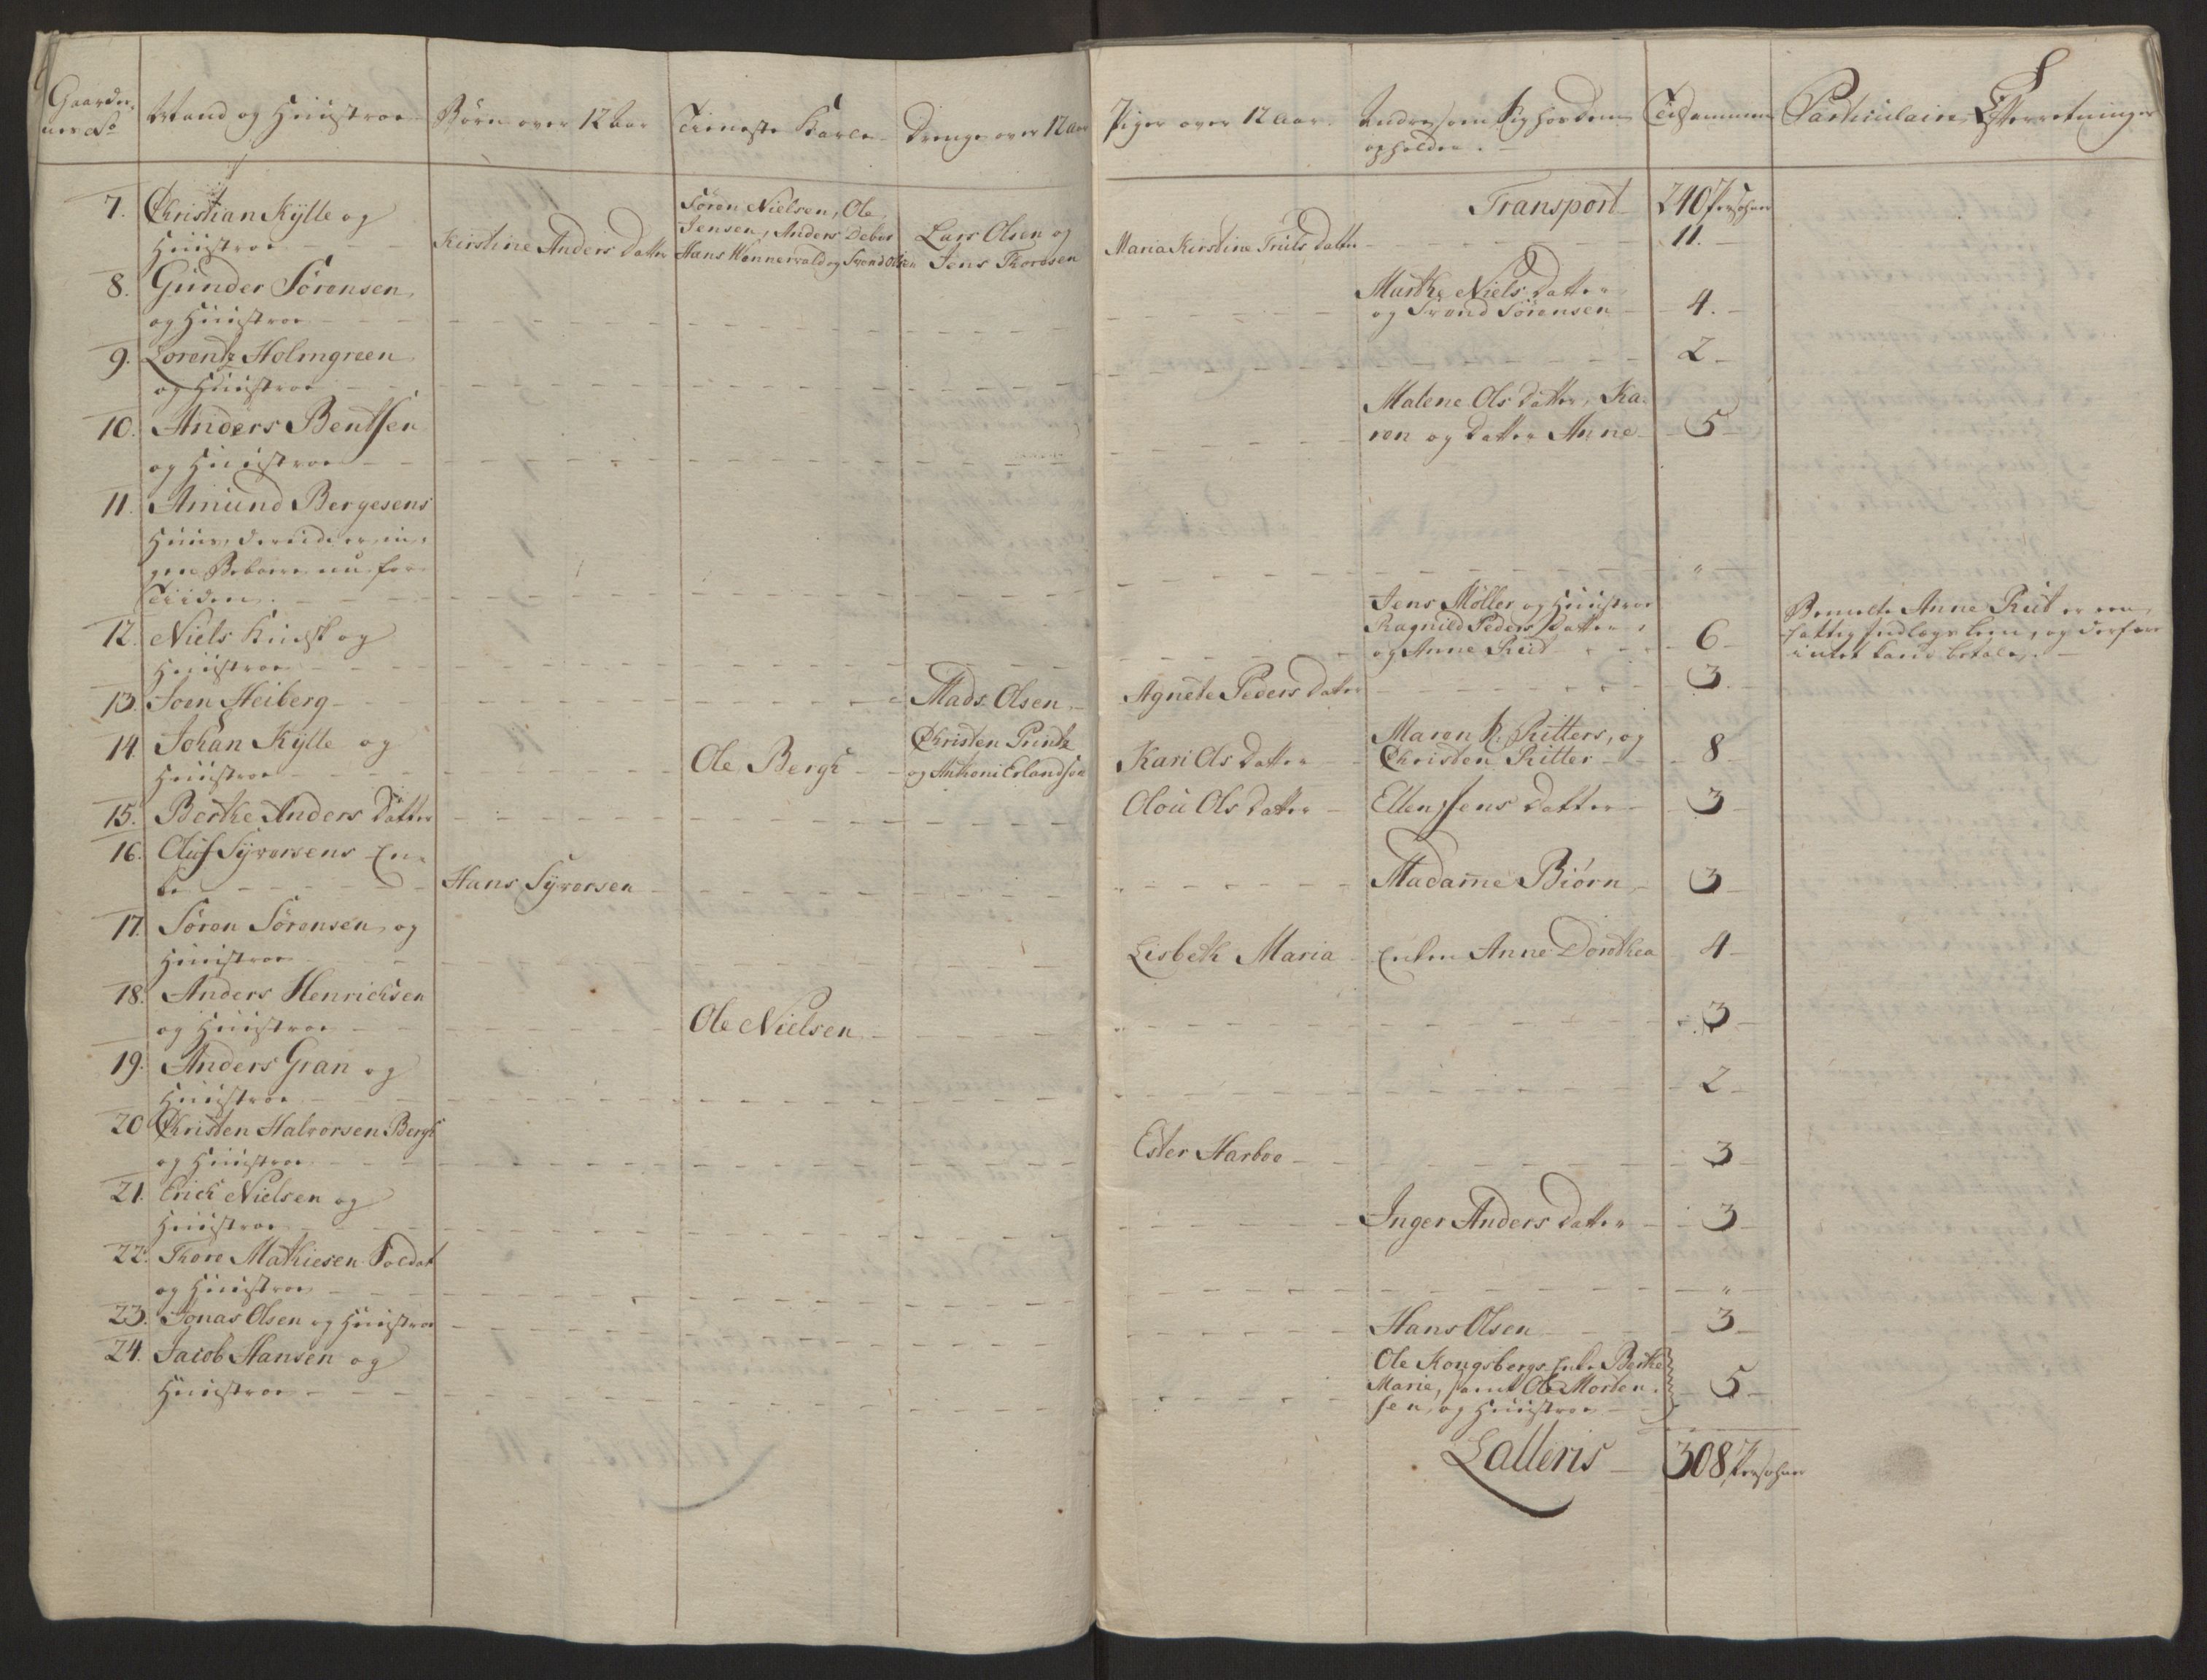 Gaarder-
nes No
Mand og Huustroe
Børn over 12 Aar
Tieneste Karle
Drenge over 12 Aar
Piger over 12 Aar.
Andre som sig hos dem
opholder.
Tilsammen
Particulaire Efterretninger
Transport 240 Persohner
7. Christian Kÿlle og
Huustroe
Kirstine Anders Datter
Søren Nielsen, Ole
Jensen, Anders Debes
Hans Wennerwald og Trond Olsen
Lars Olsen og
Jens Thoresen
Maria Kirstine Truls Datter
11.
8. Gunder Sørensen
og Huustroe
Marthe Niels Datter
og Trond Sørensen
4.
9. Lorentz Holmgreen
og Huustroe
2
10. Anders Bentsen
og Huustroe
Malene Ols Datter, Ka-
ren og Datter Anne
5
11. Amund Bergesens
Huus, derudi er in-
gen Beboere nu for
Tiiden.
"
12. Niels Kudsk og
Huustroe
Jens Møller og Huustroe
Ragnild Peders Datter,
og Anne Rud
6
Bemelte Anne Rud er een
fattig Indlægs Lem, og derfore
intet kand betale.
13. Joen Heiberg
Mads Olsen
Agnete Peders Datter
3.
14. Johan Kÿlle og
Huustroe
Ole Bergh
Christen Printz
og Anthoni Erlandsen
Kari Ols Datter
Maren R. Ritters, og
Christen Ritter
8
15. Berthe Anders Datter
Olou Ols Datter
Ellen Jens Datter
3
16. Oluf Sÿversens En-
ke
Hans Sÿversen
Madame Biørn
3
17. Søren Sørensen, og
Huustroe
Lisbeth Maria
Enken Anne Dorothea
4
18. Anders Henrichsen
og Huustroe
Ole Nielsen
3
19. Anders Gran og
Huustroe
2
20 Christen Halvorsen Bergh
og Huustroe
Ester Harboe
3
21. Erich Nielsen og
Huustroe
Inger Anders Datter
3
22. Thore Mathiesen Soldat
og Huustroe
"
23. Jonas Olsen og Huustroe
Hans Olsen
3
24. Jacob Hansen og
Huustroe
Ole Kongsbergs Enke Berthe
Marie, samt Ole Morten-
sen, og Huustroe
5
Lalleris 308 Persohner